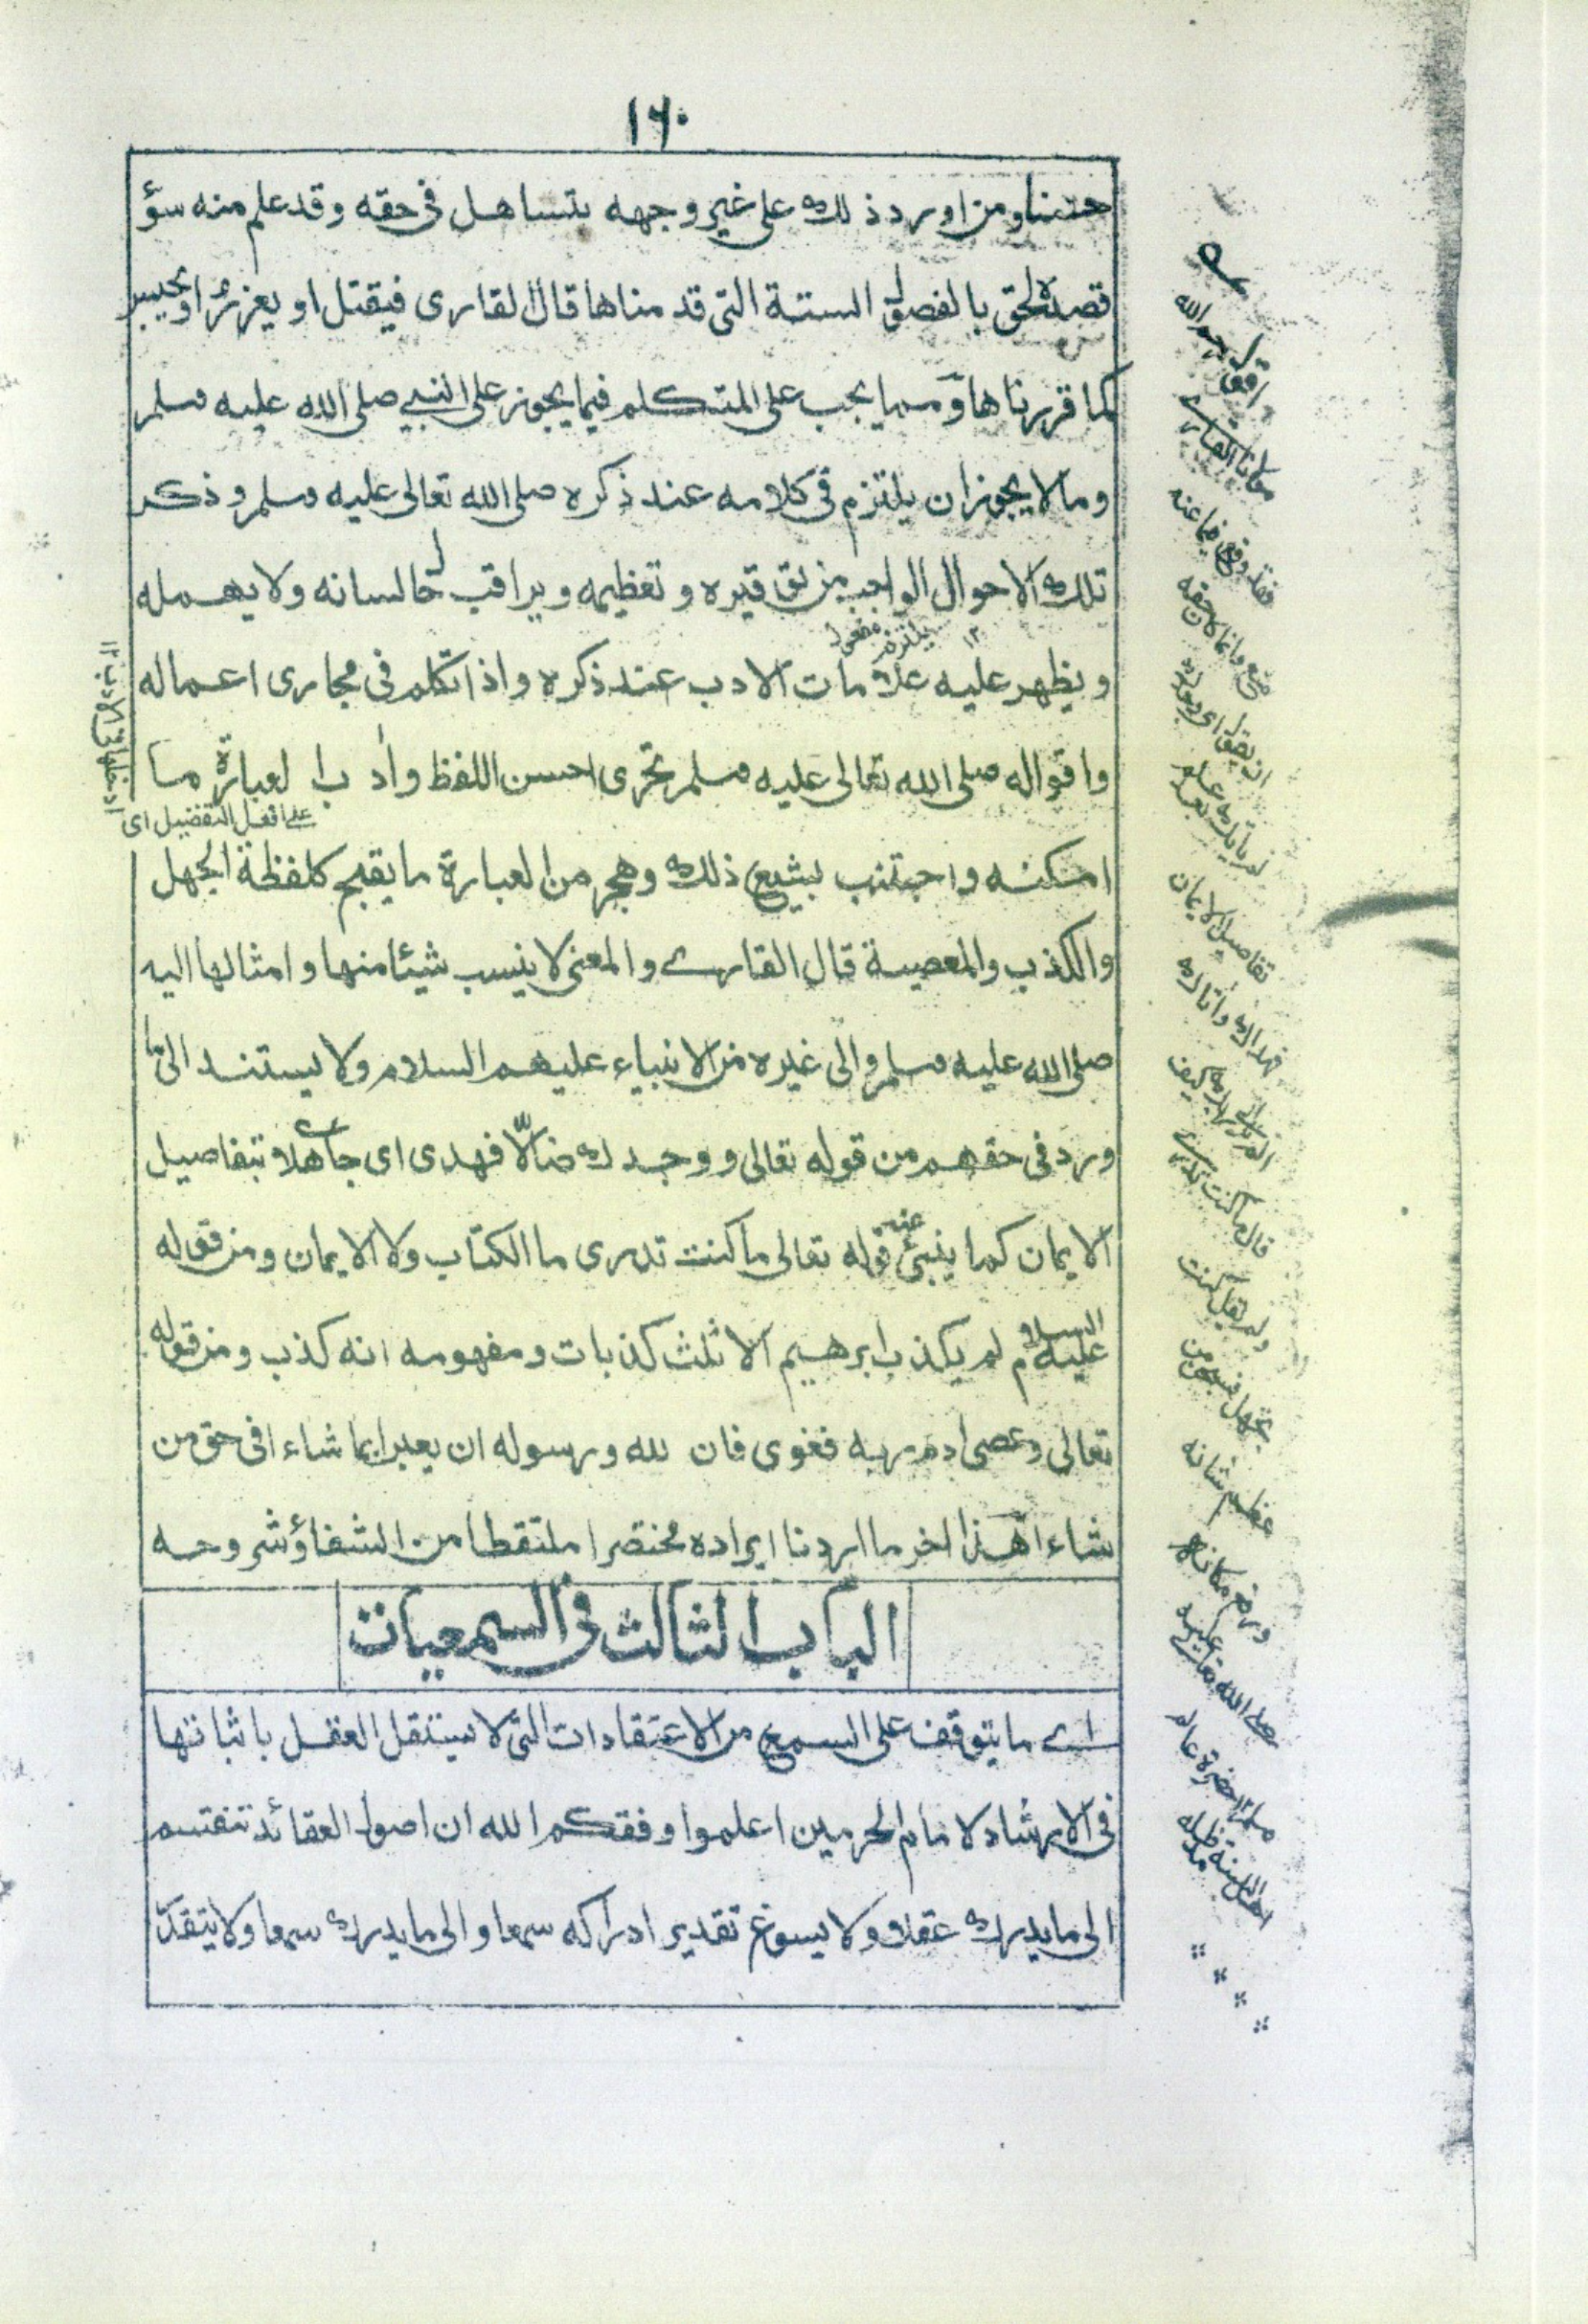 ١٦٠
حسنا ومن اورد ذلك على غير وجهه بتساهل فى حقه وقد علم منه سؤ
قصده لحق بالفصل الستة التى قدمناها قال القارى فيقتل او يعزر او يحبس
كما قررناها ومما يجب على المتكلم فيما يجوز على النبي صلى الله عليه وسلم
وما لا يجوز ان يلتزم فى كلامه عند ذكره صلى الله تعالى عليه وسلم وذكر
تلك الاحوال الواجب من توقيره وتعظيمه ويراقب حال لسانه ولا يهمله
يلتزم مفعول ١٢
ويظهر عليه علامات الادب عند ذكره واذا تكلم فى مجارى اعماله
واقواله صلى الله تعالى عليه وسلم تحرى احسن اللفظ وادب العبارة ما
على افعل التفضيل اى
امكنه واجتنب بشيع ذلك وهجر من العبارة ما يقبح كلفظة الجهل
والكذب والمعصية قال القارى والمعنى لا ينسب شيئا منها وامثالها اليه
صلى الله عليه وسلم والى غيره من الانبياء عليهم السلام ولا يستند الى ما
ورد فى حقهم من قوله تعالى ووجدك ضالّا فهدى اى جاهلا بتفاصيل
الايمان كما ينبئ عنه قوله تعالى ما كنت تدرى ما الكتاب ولا الايمان ومن قوله
عليه السلام لم يكذب ابرهيم الا ثلث كذبات ومفهومه انه كذب ومن قوله
تعالى وعصى ادم ربه فغوى فان لله ورسوله ان يعبرا بما شاء ا فى حق من
شاء ا هذا اخر ما اردنا ايراده مختصرا ملتقطا من الشفاؤ شروحه
الباب الثالث فى السمعيات
اے ما يتوقف على السمع من الاعتقادات التى لا يستقل العقل باثباتها
فى الارشاد لامام الحرمين اعلموا وفقكم الله ان اصول العقائد تنقسم
الى ما يدرك عقلا ولا يسوغ تقدير ادراكه سمعا والى ما يدرك سمعا ولا يتقدّ
رحم الله
مولانا القارے
فقد وقع فيما عنه
منع وانما كان حقه
ان يقول اى
لم ياتك علم
تفاصيل الايمان
فهداك واتاك
كيف
قال ما كنت تدرے
ولم يقل كنت
تجهل فسبحن من
عظم شانه
ورفع مكانه
صلى الله تعالے عليه
وسلم ١٢ حضرة عالم
اهل السنة مد ظله